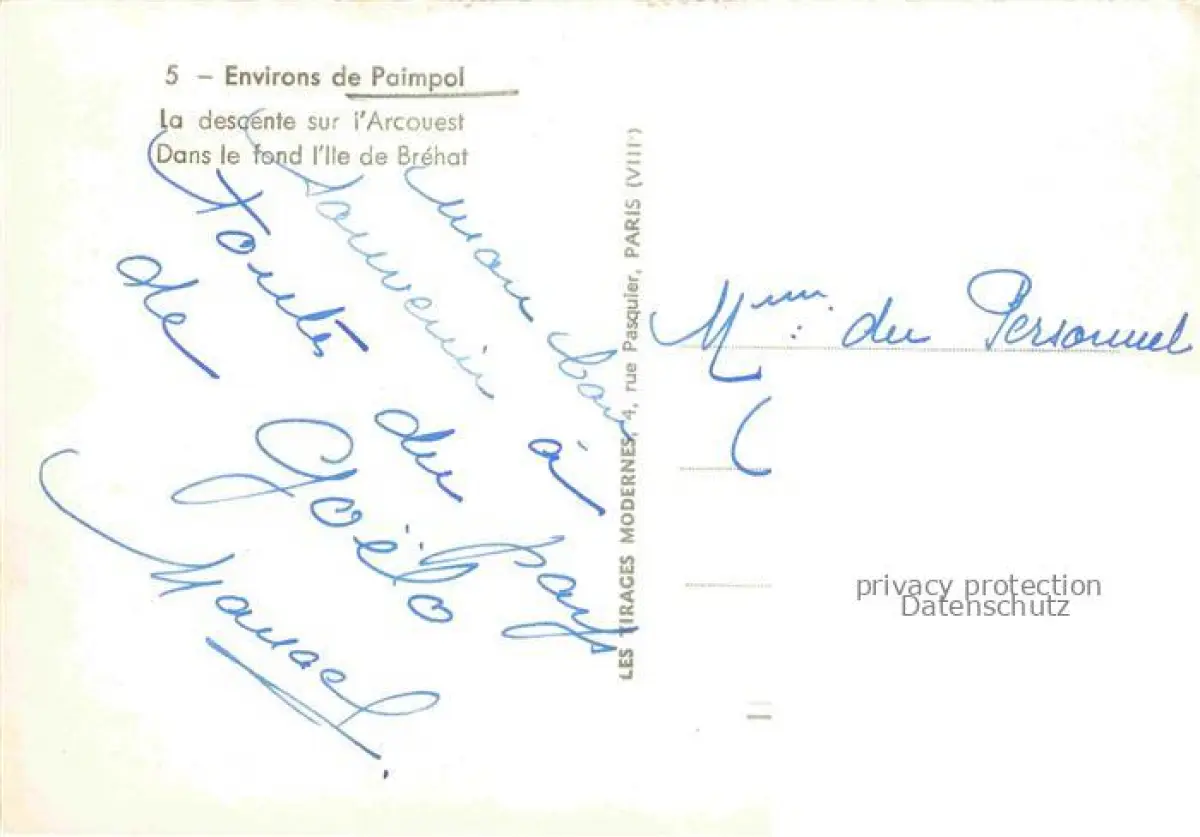 5 - Environs de Paimpol
La descente sur l'Arcouest
Dans le fond l'Ile de Bréhat
mon bon
souvenir à
toutes du pays
de Goëlo
LES TIRAGES MODERNES, 4, rue Pasquier, PARIS (VIIIe)
du Personnel
privacy protection
Datenschutz